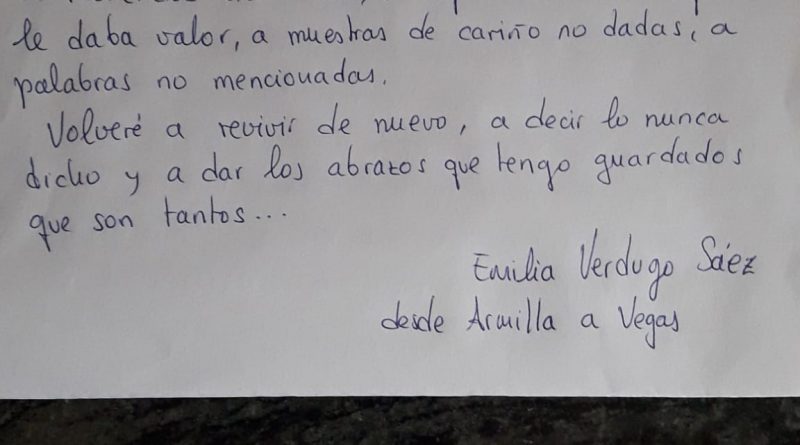 le daba valor, a muestras de cariño no dadas, a
palabras no mencionadas.
Volveré a revivir de nuevo, a decir lo nunca
dicho y a dar los abrazos que tengo guardados
que son tantos...
Emilia Verdugo Sáez
desde Armilla a Vegas